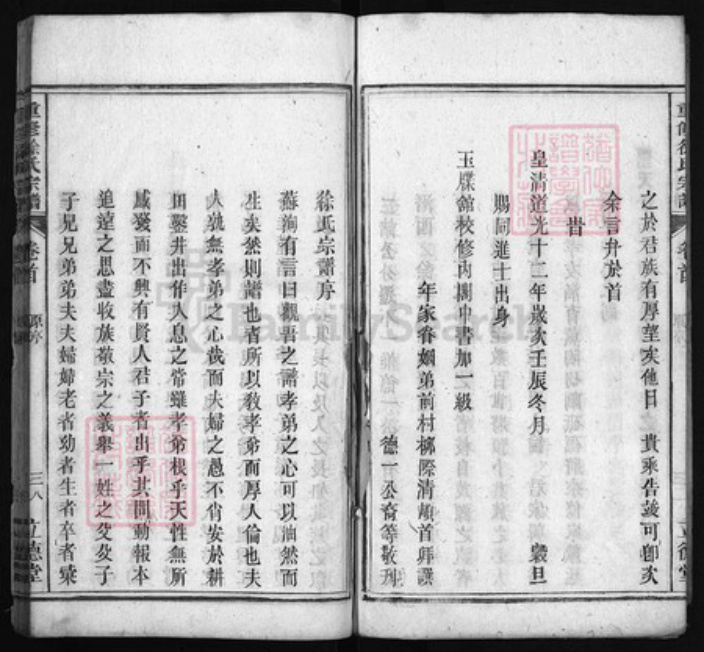 之於君族有厚望矣他日　貴乘告竣可卽以
余言弁於首
旹
皇清道光十二年歲次壬辰冬月　穀旦
賜同進士出身
玉牒館校修內閣中書加一級
年家眷姻弟前村柳際清頓首拜譔
德一公裔等敬刋
徐氏宗譜序
蘇洵有言曰觀吾之譜孝弟之心可以油然而
生矣然則譜也者所以敎孝弟而厚人倫也夫
人孰無孝弟之心哉而夫婦之愚不肖安於耕
田鑿井出作入息之常雖孝弟根乎天性無所
感發而不興有賢人君子者出乎其間動報本
追遠之思盡收族敬宗之義舉一姓之父父子
子兄兄弟弟夫夫婦婦老者幼者生者卒者彙
重修徐氏宗譜
卷首
原序
三八
立德堂
FamilySearch